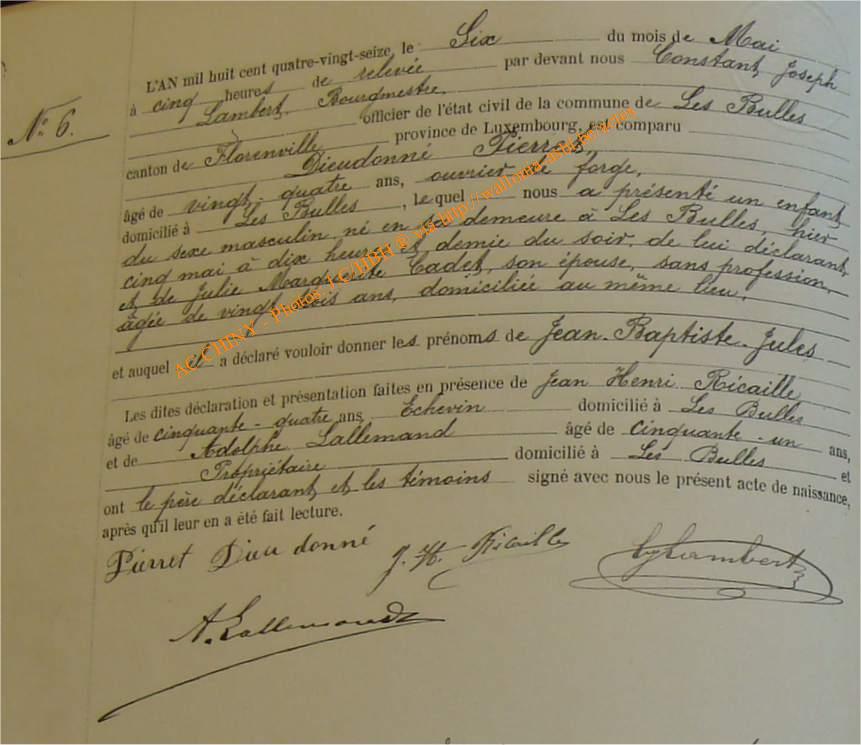 N° 6.
L'AN mil huit cent quatre-vingt-seize, le Six du mois de Mai
à cinq heures de relevée par devant nous Constant Joseph
Lambert, Bourgmestre,
officier de l'état civil de la commune de Les Bulles
canton de Florenville province de Luxembourg, est comparu
Dieudonné Pierret,
âgé de vingt-quatre ans, ouvrier de forge,
domicilié à Les Bulles, lequel nous a présenté un enfant
du sexe masculin, né en sa demeure à Les Bulles, hier
cinq mai à dix heures et demie du soir, de lui déclarant,
et de Julie Marguerite Cadet, son épouse, sans profession,
âgée de vingt-trois ans, domiciliée au même lieu,
et auquel il a déclaré vouloir donner les prénoms de Jean-Baptiste-Jules
Les dites déclaration et présentation faites en présence de Jean Henri Ricaille
âgé de cinquante-quatre ans, Echevin domicilié à Les Bulles
et de Adolphe Lallemand âgé de cinquante-un ans,
Propriétaire domicilié à Les Bulles et
ont le père déclarant et les témoins signé avec nous le présent acte de naissance,
après qu'il leur en a été fait lecture.
Pierret Dieudonné
J. H. Ricaille
Lambert
A. Lallemand
ACCHINY - Photos J-C HBH @ via http://wallonia-asbl